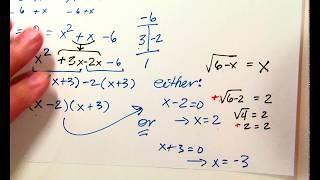 -6 + x + x
= x² + x - 6
-6
3 | -2
1
x² + 3x - 2x - 6
(x+3) - 2(x+3)
(x-2)(x+3)
either:
x-2=0
→ x = 2
or
x+3=0
→ x = -3
√6-x = x
+√6-2 = 2
√4 = 2
+2 = 2